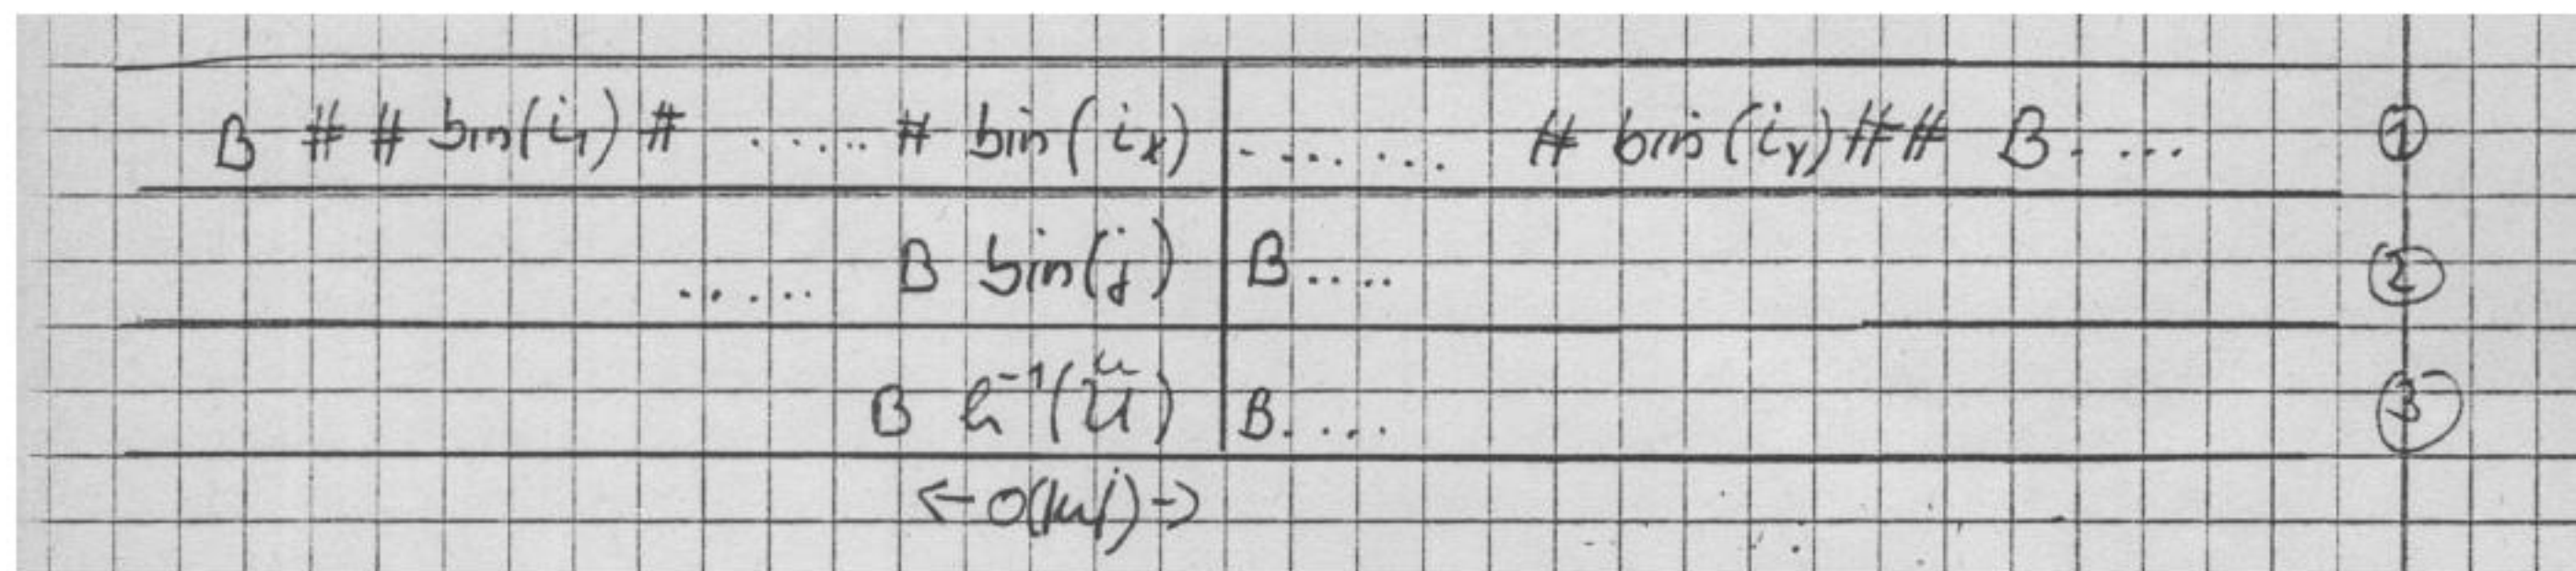 B # # bin(i₁) # ..... # bin(iₓ) ........ # bin(iᵧ) ## B..... ①
..... B bin(j) B.... ②
B h⁻¹(ũ) B..... ③
<- O(|u|) ->